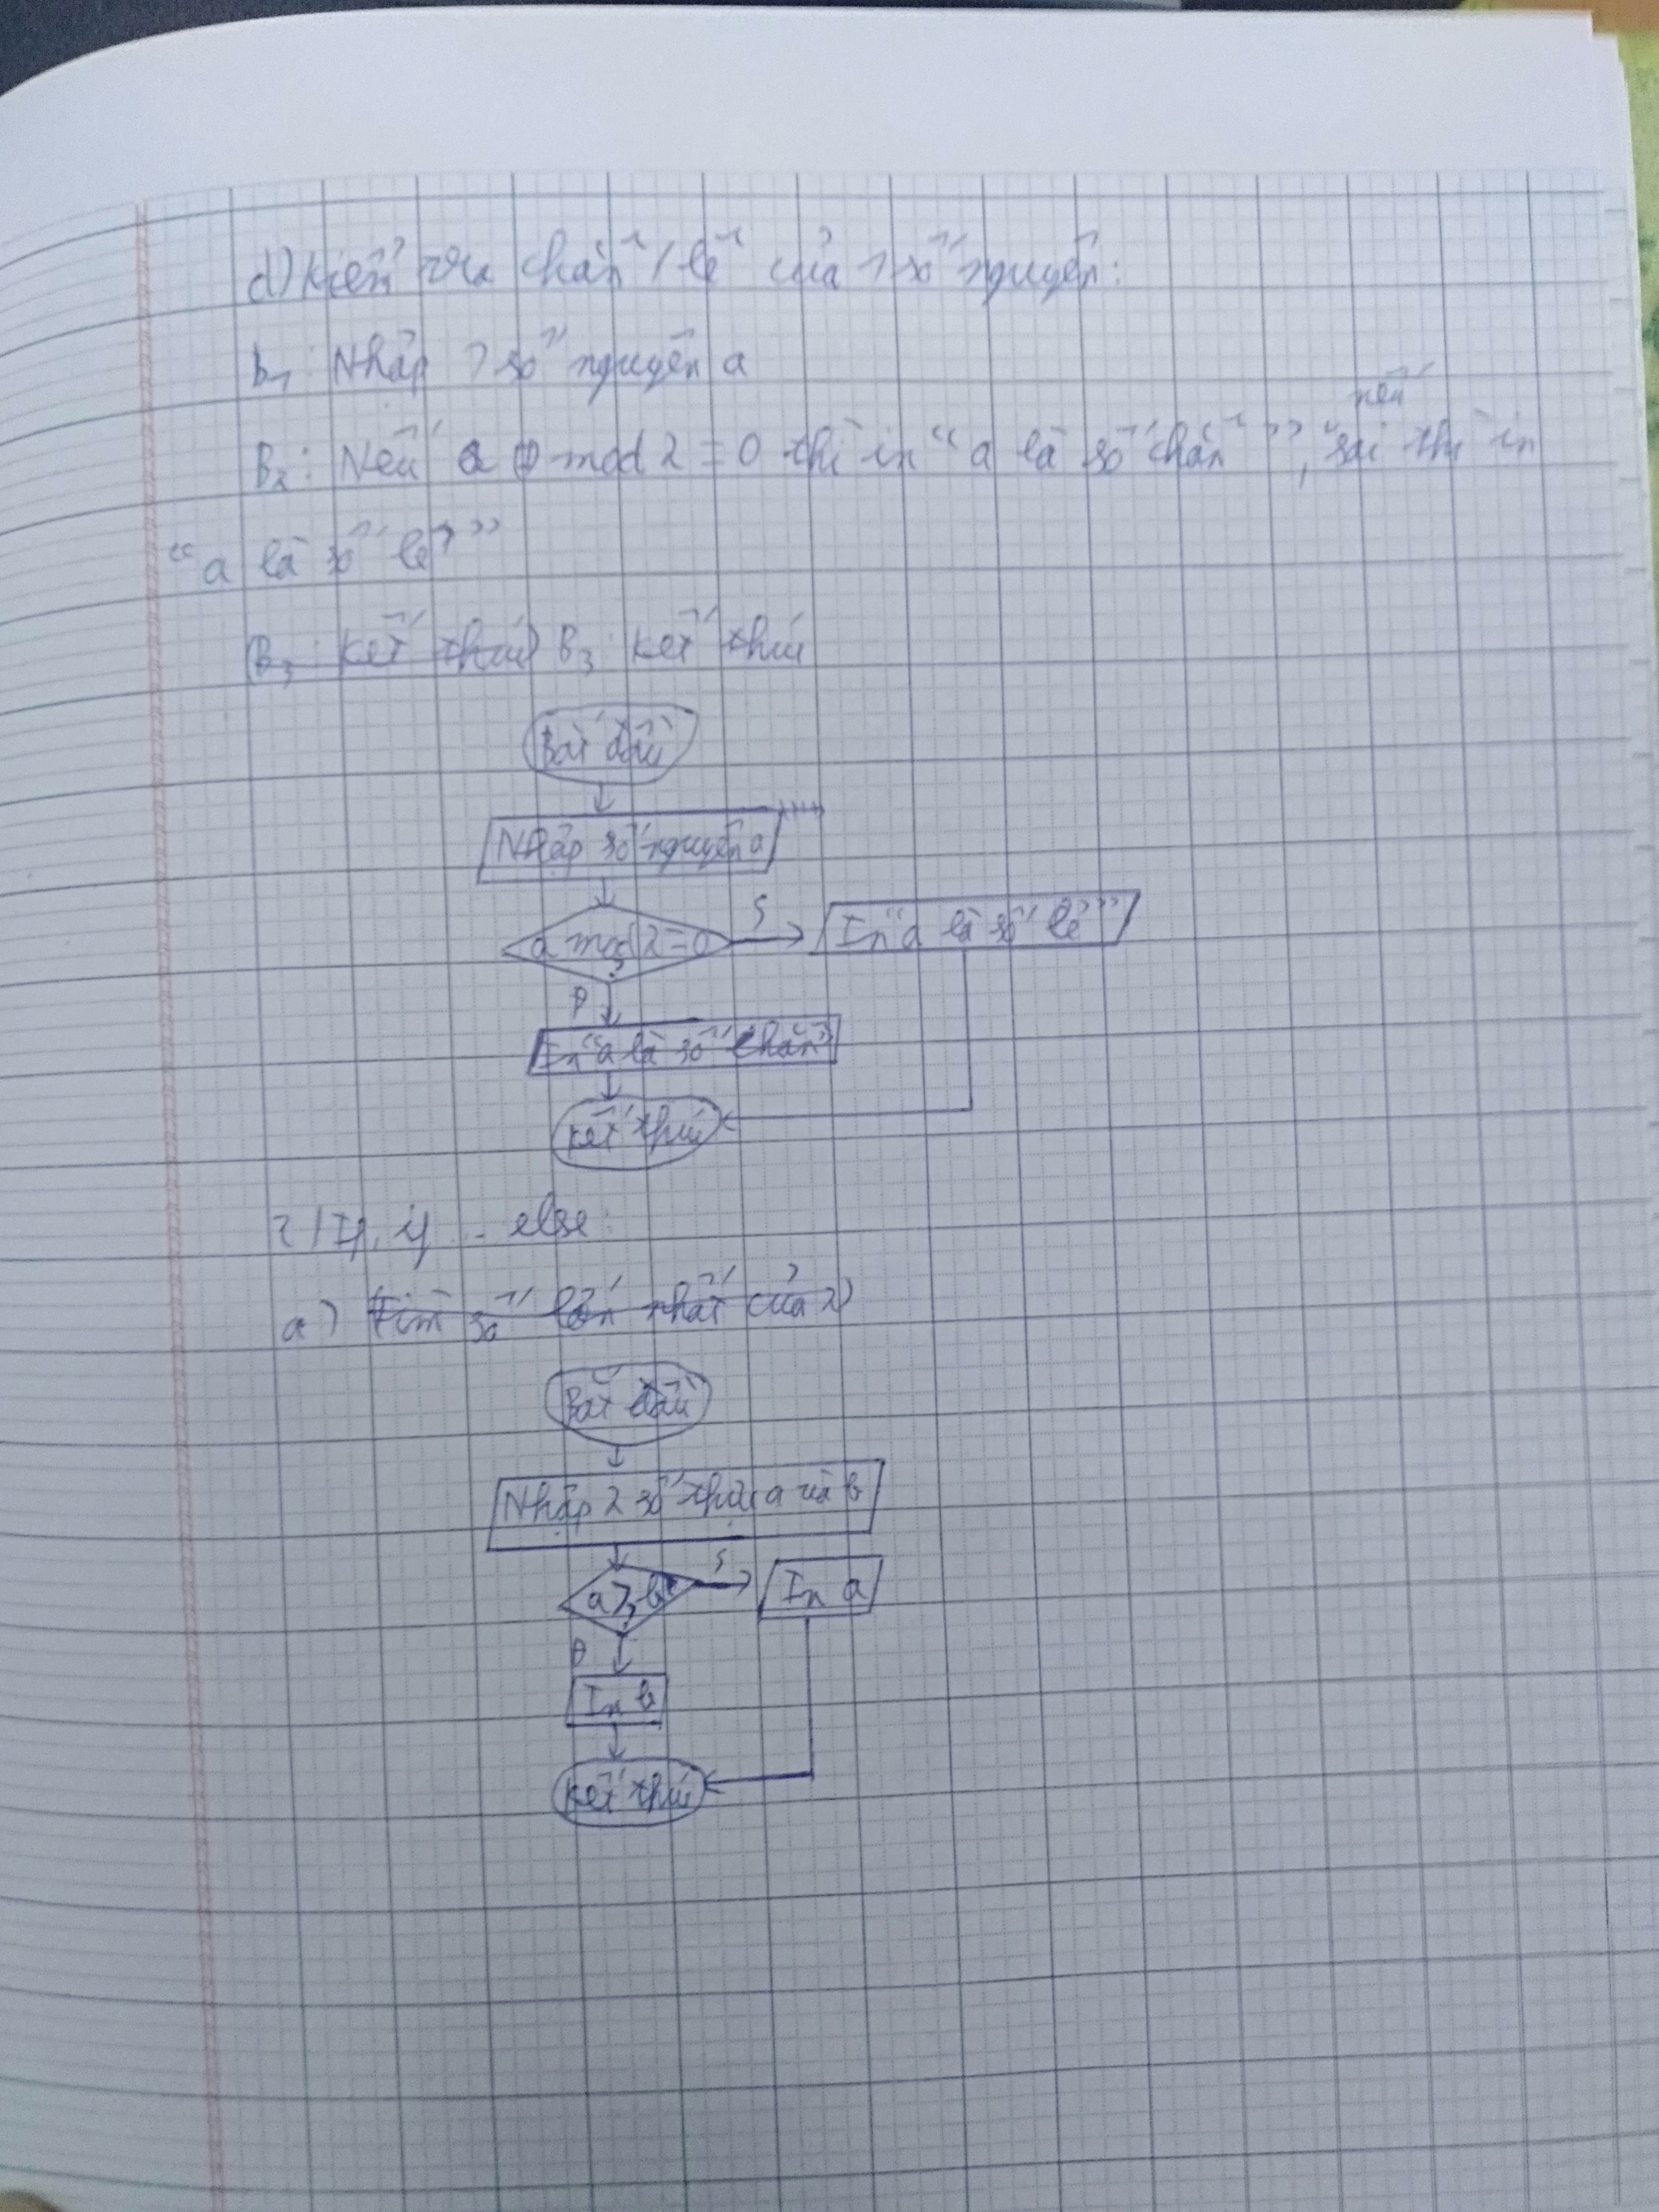 d) Kiểm tra chẵn / lẻ của 1 số nguyên:
b1: Nhập 1 số nguyên a
nếu
B2: Nếu a mod 2 = 0 thì in "a là số chẵn", sai thì in
"a là số lẻ"
B3: Kết thúc B3: Kết thúc
Bắt đầu
Nhập số nguyên a
a mod 2 = 0 ? S In "a là số lẻ"
Đ
In "a là số chẵn"
Kết thúc
2/ If, if ... else:
a) Tìm số lớn nhất của 2
Bắt đầu
Nhập 2 số thực a và b
a > b ? S In a
Đ
In b
Kết thúc